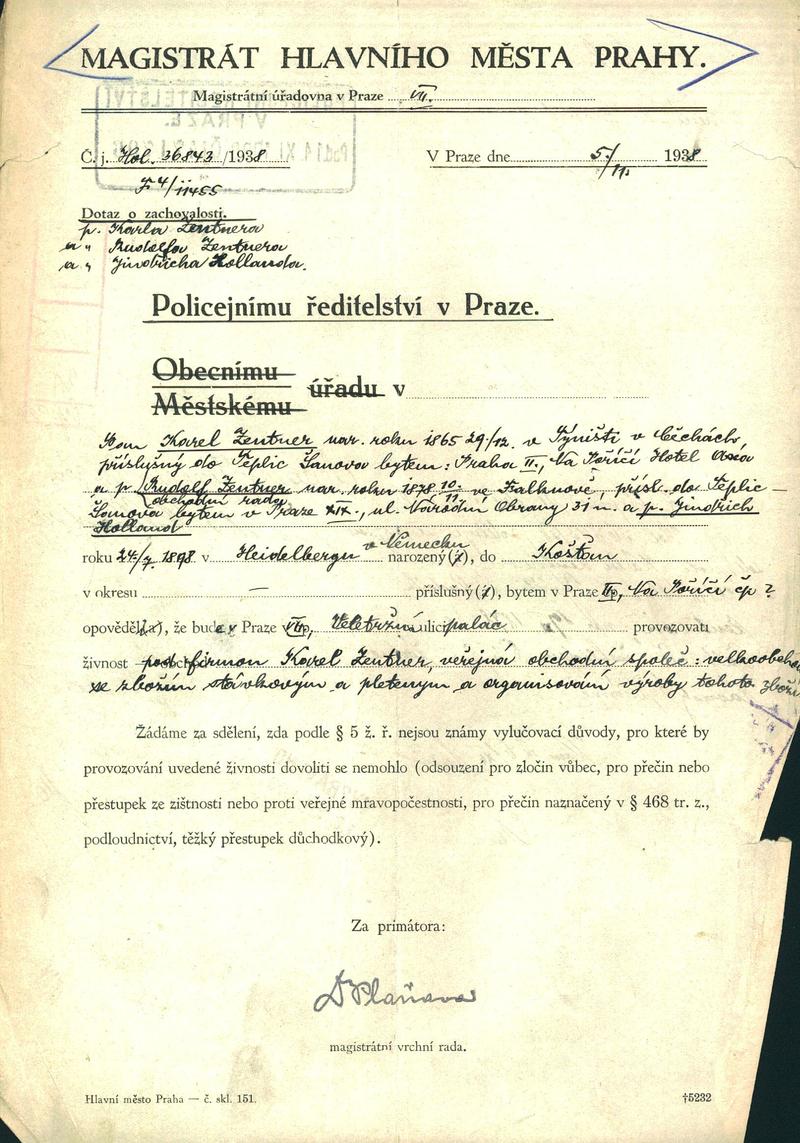 MAGISTRÁT HLAVNÍHO MĚSTA PRAHY.
Magistrátní úřadovna v Praze VII.
Č. j. Hol. 36843 /1938
V Praze dne 5./11. 1938
F 4/11455
Dotaz o zachovalosti.
p. Karla Zentnera
a " Rudolfa Zentnera
a " Jindřicha Hollanda.
Policejnímu ředitelství v Praze.
Obecnímu
Městskému úřadu v
Pan Karel Zentner nar. roku 1865 29./12. v Týništi v Čechách,
příslušný do Teplic Šanova bytem: Praha II., Na Poříčí Hotel Axa
a p. Rudolf Zentner nar. roku 1878 10./11. ve Falknově, přísl. do Teplic-
obchodní rada
Šanova bytem v Praze XIX., ul. Národní Obrany 31 n. a p. Jindřich
Holland
roku 24./7. 1898 v Heidelbergu v Německu narozený(á), do Košťan
v okresu — příslušný(á), bytem v Praze II, Na Poříčí čp ?
opověděl(a), že bude v Praze VII, Veletržní ulici palác provozovati
živnost pod firmou Karel Zentner, veřejná obchodní společ: velkoobchod
se zbožím stávkovým a pleteným a organisování výroby tohoto zboží
Žádáme za sdělení, zda podle § 5 ž. ř. nejsou známy vylučovací důvody, pro které by
provozování uvedené živnosti dovoliti se nemohlo (odsouzení pro zločin vůbec, pro přečin nebo
přestupek ze zištnosti nebo proti veřejné mravopočestnosti, pro přečin naznačený v § 468 tr. z.,
podloudnictví, těžký přestupek důchodkový).
Za primátora:
Dr Plaňava
magistrátní vrchní rada.
Hlavní město Praha — č. skl. 151.
†5232